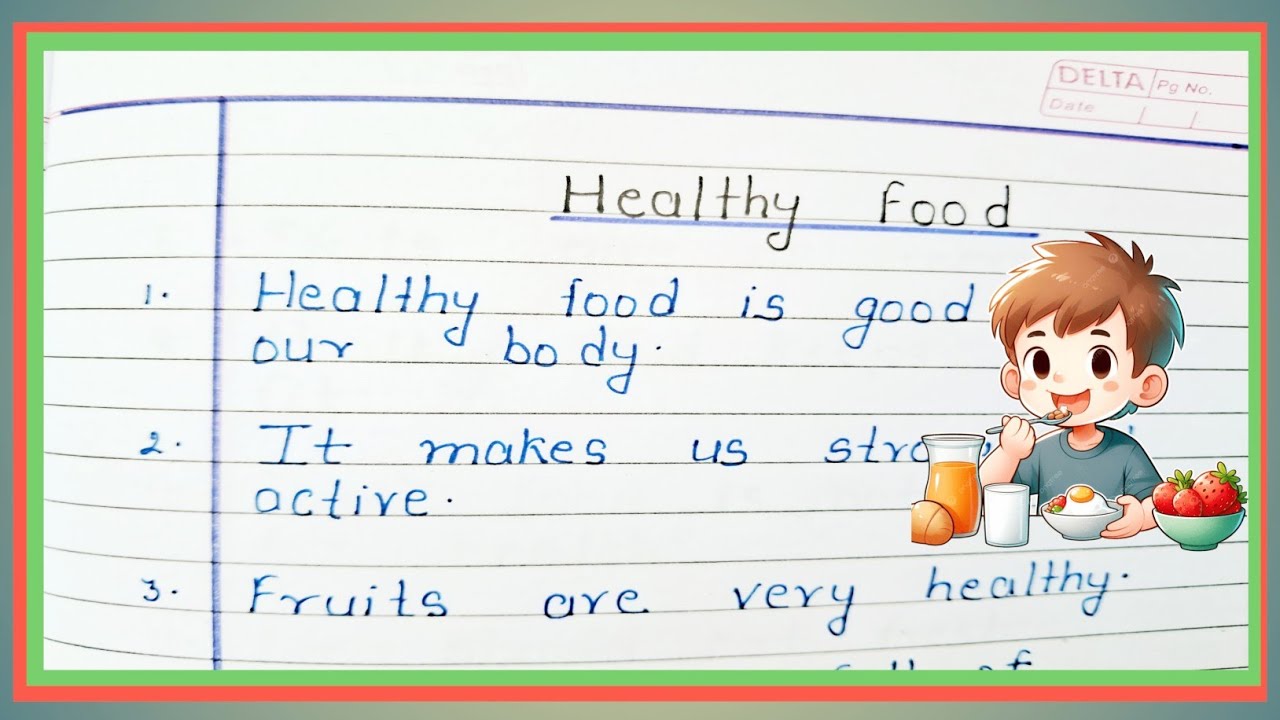 DELTA Pg No.
Date
Healthy food
1. Healthy food is good
our body.
2. It makes us
active.
3. Fruits are very healthy.
of